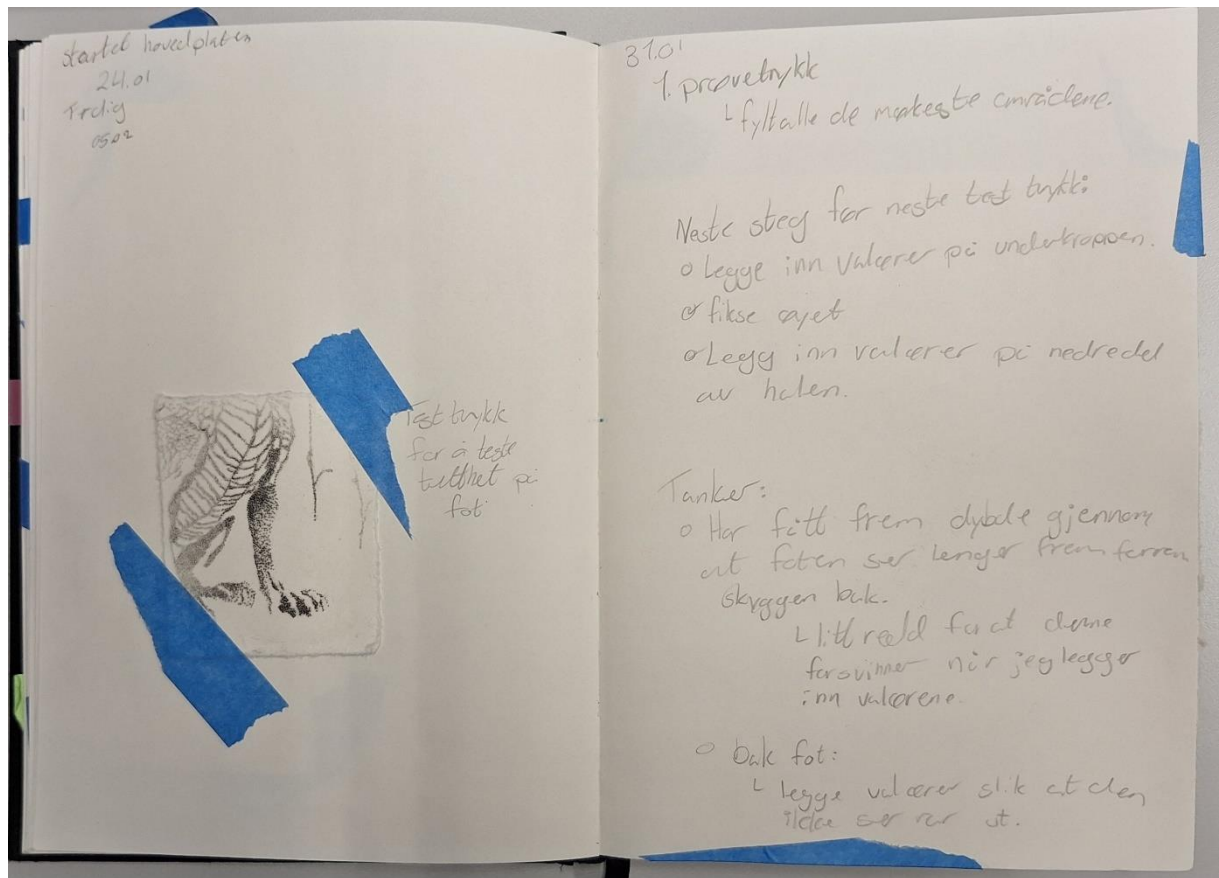 startet hovedplaten
24.01
Ferdig
05.02
Test trykk
for å teste
tetthet på
fot
31.01
1. prøvetrykk
fylt alle de mørkeste områdene.
Neste steg før neste test trykk:
o Legge inn valører på underkroppen.
o fikse øyet
o Legg inn valører på nedredel
av halen.
Tanker:
o Har fått frem dybde gjennom
at foten ser lenger frem ferran
skyggen bak.
litt redd for at denne
forsvinner når jeg legger
inn valørene.
o bak fot:
legge valører slik at den
ikke ser rar ut.